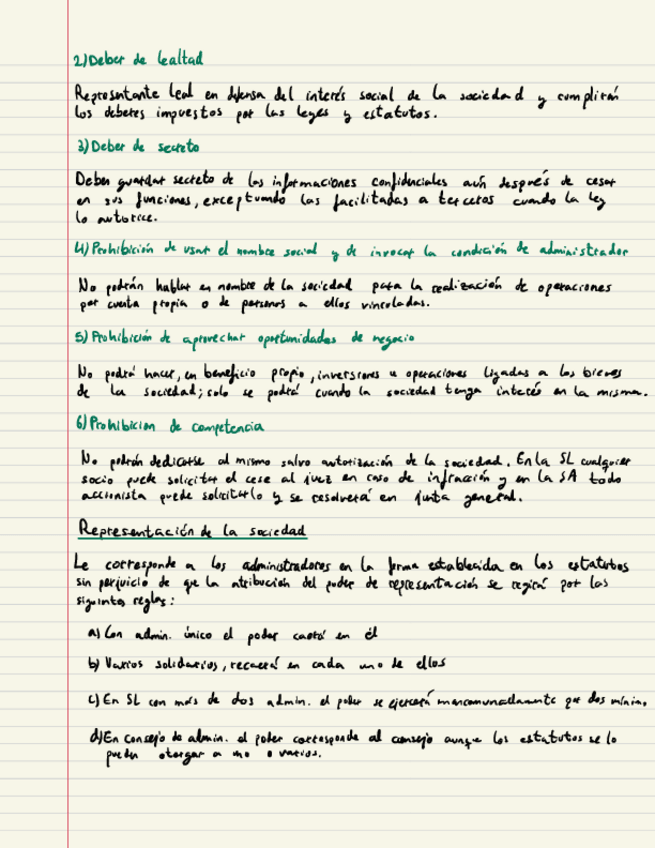 2) Deber de lealtad
Representante leal en defensa del interés social de la sociedad y cumplirán
los deberes impuestos por las leyes y estatutos.
3) Deber de secreto
Deben guardar secreto de las informaciones confidenciales aún después de cesar
en sus funciones, exceptuando las facilitadas a terceros cuando la ley
lo autorice.
4) Prohibición de usar el nombre social y de invocar la condición de administrador
No podrán hablar en nombre de la sociedad para la realización de operaciones
por cuenta propia o de personas a ellos vinculadas.
5) Prohibición de aprovechar oportunidades de negocio
No podrá hacer, en beneficio propio, inversiones u operaciones ligadas a los bienes
de la sociedad; solo se podrá cuando la sociedad tenga interés en la misma.
6) Prohibicion de competencia
No podrán dedicarse al mismo salvo autorización de la sociedad. En la SL cualquier
socio puede solicitar el cese al juez en caso de infracción y en la SA todo
accionista puede solicitarlo y se resolverá en junta general.
Representación de la sociedad
Le corresponde a los administradores en la forma establecida en los estatutos
sin perjuicio de que la atribución del poder de representación se regirá por las
siguientes reglas:
a) Con admin. único el poder caerá en él
b) Varios solidarios, recaerá en cada uno de ellos
c) En SL con más de dos admin. el poder se ejercerá mancomunadamente por dos mínimo.
d) En consejo de admin. el poder corresponde al consejo aunque los estatutos se lo
pueden otorgar a uno o varios.